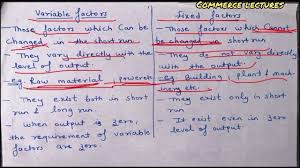 COMMERCE LECTURES
Variable factors
- Those factors which Can be
changed in the short run
- They vary directly with the
level of output.
- eg. Raw material, power etc
- They exist both in short
run & long run.
- When output is zero,
the requirement of variable
factors are zero.
fixed factors
- Those factors which Cannot
be changed in short run
- They do not vary directly
with the output.
- eg. Building, plant & mach-
inery etc.
- They exist only in short
run
- It exist even in zero
level of output